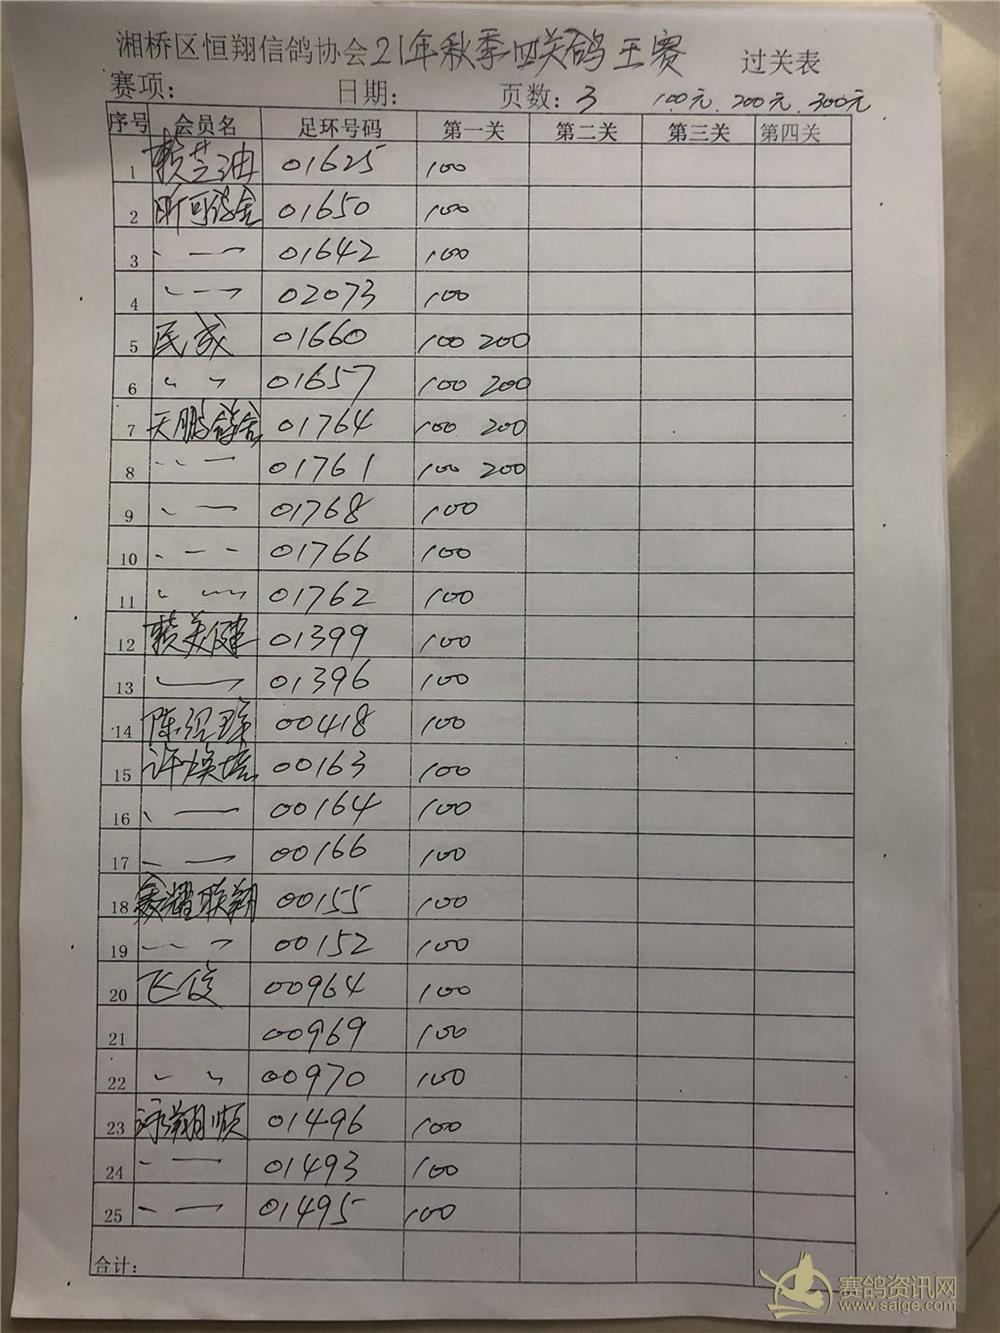 湘桥区恒翔信鸽协会21年秋季四关鸽王赛 过关表
赛项: 日期: 页数: 3 100元.200元.300元
序号 会员名 足环号码 第一关 第二关 第三关 第四关
1 赖芝油 01625 100
2 昕可鸽舍 01650 100
3 〃 — 01642 100
4 〃 — 02073 100
5 民成 01660 100 200
6 〃 〃 01657 100 200
7 天鹏鸽舍 01764 100 200
8 〃 — 01761 100 200
9 〃 — 01768 100
10 〃 — 01766 100
11 〃 — 01762 100
12 赖美健 01399 100
13 — 01396 100
14 陈 00418 100
15 许焕培 00163 100
16 〃 — 00164 100
17 — 00166 100
18 耀联翔 00155 100
19 — 〃 00152 100
20 飞俊 00964 100
21 00969 100
22 〃 〃 00970 100
23 泳翔顺 01496 100
24 — 01493 100
25 — 01495 100
合计:
赛鸽资讯网
www.saige.com